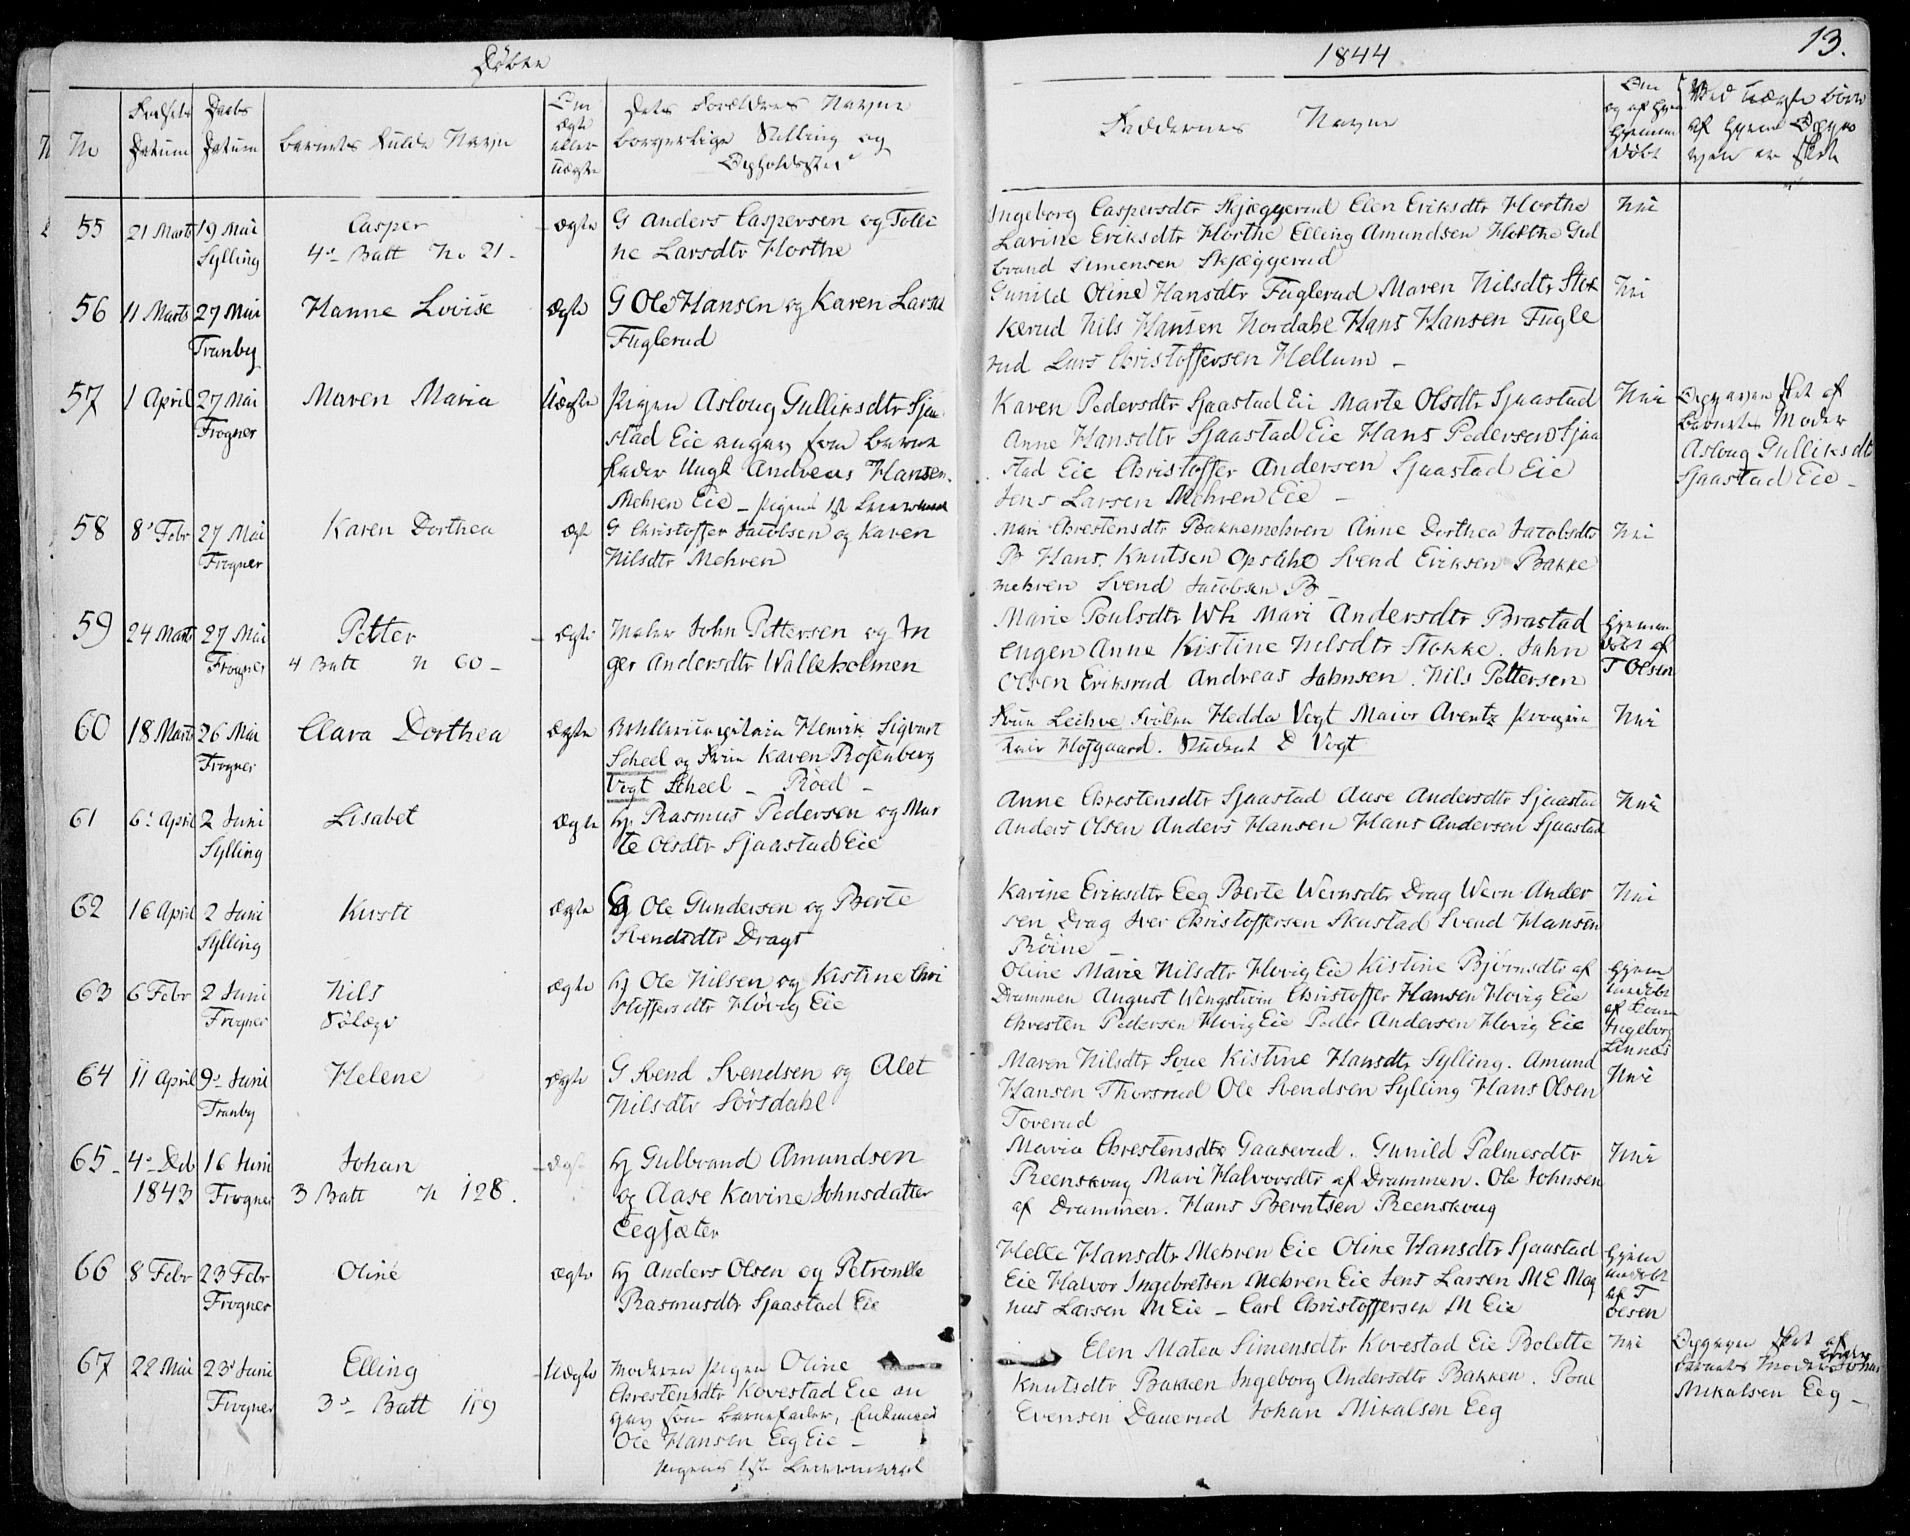 Døbte
1844
13.
No
Fødsels Datum
Daabs Datum
Barnets fulde Navn
Om ægte eller uægte
Dets Forældres Navne borgerlige Stilling og Opholdssted
Faddernes Navne
55 21 Marts 19 Mai Sylling
Casper
4de Batt No 21
ægte
G Anders Caspersen og Tolli
ne Larsdtr Horthe
Ingeborg Caspersdtr Skjæggerud Elen Eriksdtr Horthe
Larine Eriksdtr Horthe Elling Amundsen Horthe Gul
brand Simensen Skjæggerud
Nei
56 11 Marts 27 Mai Tranby
Hanne Lovise
ægte
G Ole Hansen og Karen Larsd
Fuglerud
Gunild Oline Hansdtr Fuglerud Maren Nilsdtr Stok
kerud Nils Hansen Nordahl Hans Hansen Fugle
rud Lars Christoffersen Hellum
Nei
57 1 April 27 Mai Frogner
Maren Maria
Uægte
Pigen Asloug Gulliksdtr Sjaa
stad Eie angav som Barne
fader Ungk Andreas Hansen
Mehren Eie – Pigens 1st Leiermaal
Karen Pedersdtr Sjaastad Eie Marte Olsdtr Sjaastad
Anne Hansdtr Sjaastad Eie Hans Pedersen Sjaa
stad Eie Christoffer Andersen Sjaastad Eie
Jens Larsen Mehren Eie –
Nei
Opgaven sket af
Barnets Moder
Asloug Gulliksdt
Sjaastad Eie –
58 8 Febr 27 Mai Frogner
Karen Dorthea
ægte
G Christoffer Jacobsen og Karen
Nilsdtr Mehren
Mari Chrestensdtr Bakkemehren Anne Dorthea Jacobsdtr
B Hans Knutsen Opsahl Svend Eriksen Bakke
mehren Svend Jacobsen B
Nei
59 24 Marts 27 Mai Frogner
Petter
4 Batt N 60 –
ægte
John Pettersen og In
ger Andersdtr Walleholmen
Marie Poulsdtr Wh Mari Andersdtr Brastad
engen Anne Kistine Nilsdtr Stokke. John
Olsen Eriksrud Andreas Johnsen. Nils Pettersen
Hjemme
døbt af
T Olsen
60 18 Marts 26 Mai Frogner
Clara Dorthea
ægte
Artillericapitain Henrik Sigvart
Scheel og Frue Karen Rosenberg
Vogt Scheel – Röed –
Frue Leihve Frøken Hedda Vogt Maior Arentz
Hofgaard. Student D Vogt
Nei
61 6 April 2 Juni Sylling
Lisabet
ægte
Hj Rasmus Pedersen og Mar
te Olsdtr Sjaastad Eie
Anne Chrestensdtr Sjaastad Aase Andersdtr Sjaastad
Anders Olsen Anders Hansen Hans Andersen Sjaastad
Nei
62 16 April 2 Juni Sylling
Kirsti
ægte
G Ole Gundersen og Berte
Svendsdtr Drags
Karine Eriksdtr Eeg Berte Wernsdtr Drag Wern Ander
sen Drag Iver Christoffersen Skustad Svend Hansen
Röine
Nei
63 6 Febr 2 Juni Frogner
Nils
ægte
Hj Ole Nilsen og Kistine Chri
stoffersdtr Hövig Eie
Oline Marie Nilsdtr Hovig Eie Kistine Björnsdtr af
Drammen August Wengstrøm Christoffer Hansen Hovig Eie
Chresten Pedersen Hovig Eie Peder Andersen Hovig Eie
Hjem
medøbt
af
Ingeborg
Linnæs
64 11 April 9de Juni Tranby
Helene
ægte
G Svend Svendsen og Alet
Nilsdtr Sörsdahl
Maren Nilsdtr Kistine Hansdtr Sylling. Amund
Hansen Thorsrud Ole Svendsen Sylling Hans Olsen
Toverud
Nei
65 4de Deb 1843 16 Juni Frogner
Johan
3 Batt N 128.
ægte
Hj Gulbrand Amundsen
og Aase Karine Johnsdatter
Eegsæter
Maria Chrestensdtr Gaaserud. Gunild Palmesdtr
Reenskoug Mari Halvorsdtr af Drammen. Ole Johnsen
af Drammen. Hans Berntsen Reenskoug
Nei
66 8 Febr 23 Febr Frogner
Oline
ægte
Hj Anders Olsen og Petronelle
Rasmusdtr Sjaastad Eie
Helle Hansdtr Mehren Eie Oline Hansdtr Sjaastad
Eie Halvor Ingebretsen Mehren Eie Jens Larsen ME Mag
nus Larsen M Eie – Carl Christoffersen M Eie
Hjem
medøbt
af T
Olsen
67 22 Mai 23 Juni Frogner
Elling
3de Batt 119
Uægte
Moderen Pigen Oline
Chrestensdtr Kovestad Eie an
gav som Barnefader, Enkemand
Ole Hansen Eeg Eie –
Pigens 1ste Leiermaal
Elen Matea Simensdtr Kovestad Eie Bolette
Knutsdtr Bakken Ingeborg Andersdtr Bakken. Poul
Evensen Daverud Johan Mikalsen Eeg
Nei
Opgaven sket af
Barnets Moders
Mikalsen Eeg –